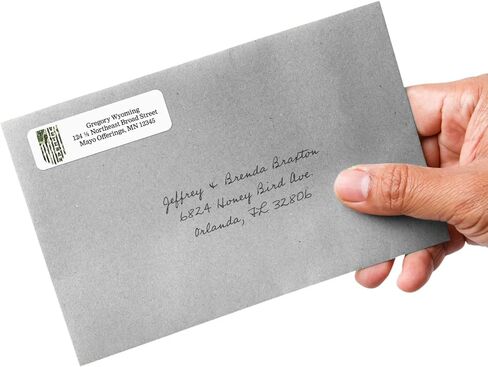 Gregory Wyoming
124 ½ Northeast Broad Street
Mayo Offerings, MN 12345
Jeffrey & Brenda Braxton
6824 Honey Bird Ave.
Orlanda, FL 32806